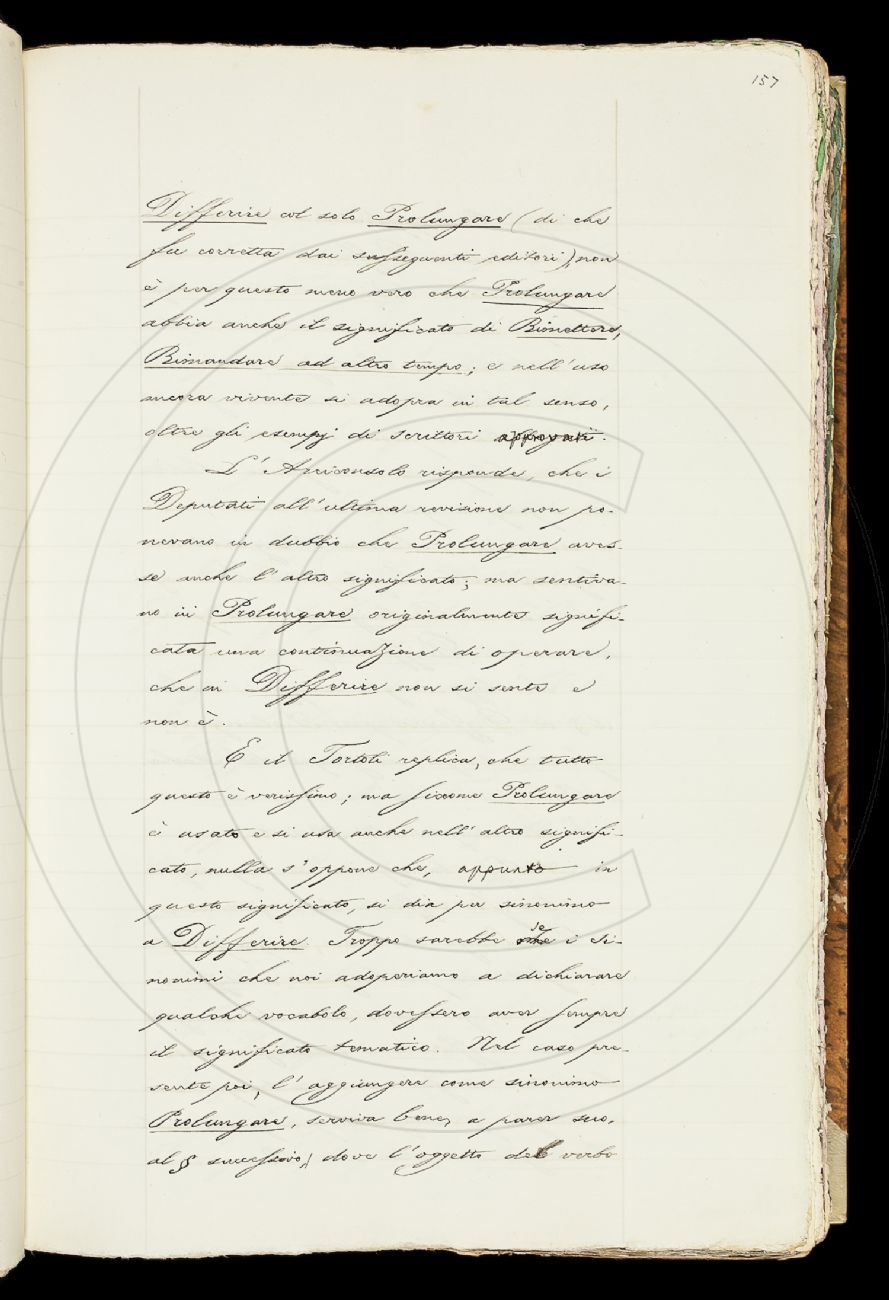 157
Differire col solo Prolungare (di che
fu corretta dai susseguenti editori), non
è per questo meno vero che Prolungare
abbia anche il significato di Rimettere,
Rimandare ad altro tempo; e nell'uso
ancora vivente si adopra in tal senso,
oltre gli esempj di scrittori approvati.
L'Arciconsolo risponde, che i
Deputati all'ultima revisione non po-
nevano in dubbio che Prolungare aves-
se anche l'altro significato; ma sentiva-
no in Prolungare originalmente signifi-
cata una continuazione di operare,
che in Differire non si sente e
non è.
E il Tortoli replica, che tutto
questo è verissimo; ma siccome Prolungare
è usato e si usa anche nell'altro signifi-
cato, nulla s'oppone che, appunto in
questo significato, si dia per sinonimo
a Differire. Troppo sarebbe se i Si-
nonimi che noi adoperiamo a dichiarare
qualche vocabolo, dovessero aver sempre
il significato tematico. Nel caso pre-
sente poi, l'aggiungere come sinonimo
Prolungare, serviva bene, a parer suo,
al § successivo, dove l'oggetto del verbo